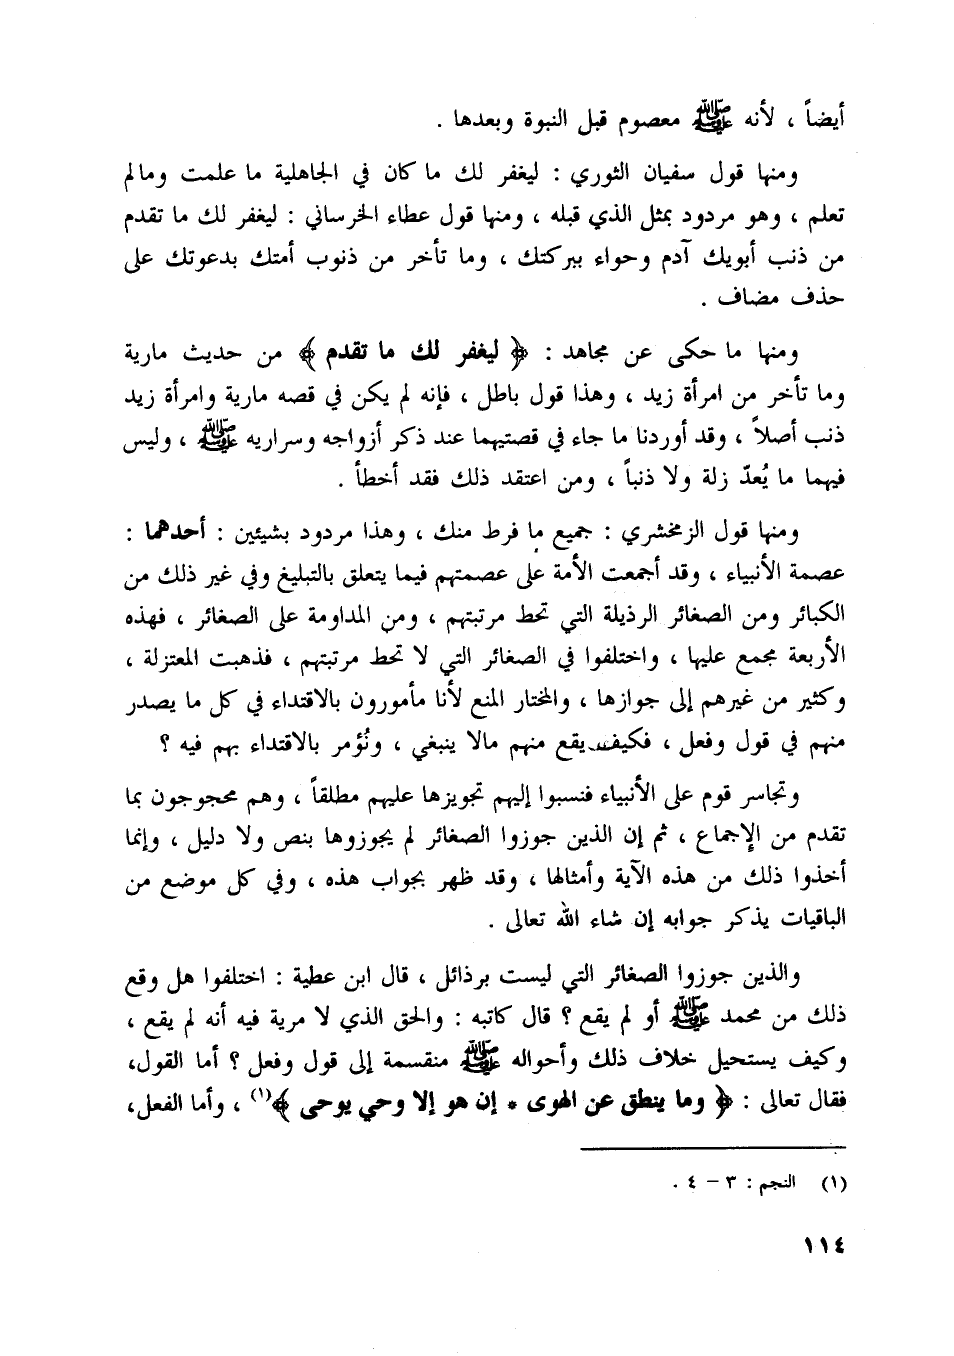 أيضاً ، لأنه ﷺ معصوم قبل النبوة وبعدها .
ومنها قول سفيان الثوري : ليغفر لك ما كان في الجاهلية ما علمت ومالم
تعلم ، وهو مردود بمثل الذي قبله ، ومنها قول عطاء الخرساني : ليغفر لك ما تقدم
من ذنب أبويك آدم وحواء ببركتك ، وما تأخر من ذنوب أمتك بدعوتك على
حذف مضاف .
ومنها ما حكى عن مجاهد : ﴿ ليغفر لك ما تقدم ﴾ من حديث مارية
وما تأخر من امرأة زيد ، وهذا قول باطل ، فإنه لم يكن في قصه مارية وامرأة زيد
ذنب أصلاً ، وقد أوردنا ما جاء في قصتيهما عند ذكر أزواجه وسراريه ﷺ ، وليس
فيهما ما يُعدّ زلة ولا ذنباً ، ومن اعتقد ذلك فقد أخطأ .
ومنها قول الزمخشري : جميع ما فرط منك ، وهذا مردود بشيئين : أحدهما :
عصمة الأنبياء ، وقد أجمعت الأمة على عصمتهم فيما يتعلق بالتبليغ وفي غير ذلك من
الكبائر ومن الصغائر الرذيلة التي تحط مرتبتهم ، ومن المداومة على الصغائر ، فهذه
الأربعة مجمع عليها ، واختلفوا في الصغائر التي لا تحط مرتبتهم ، فذهبت المعتزلة ،
وكثير من غيرهم إلى جوازها ، والمختار المنع لأنا مأمورون بالاقتداء في كل ما يصدر
منهم في قول وفعل ، فكيف يقع منهم مالا ينبغي ، ونُؤمر بالاقتداء بهم فيه ؟
وتجاسر قوم على الأنبياء فنسبوا إليهم تجويزها عليهم مطلقاً ، وهم محجوجون بما
تقدم من الإجماع ، ثم إن الذين جوزوا الصغائر لم يجوزوها بنص ولا دليل ، وإنما
أخذوا ذلك من هذه الآية وأمثالها ، وقد ظهر بجواب هذه ، وفي كل موضع من
الباقيات يذكر جوابه إن شاء الله تعالى .
والذين جوزوا الصغائر التي ليست برذائل ، قال ابن عطية : اختلفوا هل وقع
ذلك من محمد ﷺ أو لم يقع ؟ قال كاتبه : والحق الذي لا مرية فيه أنه لم يقع ،
وكيف يستحيل خلاف ذلك وأحواله ﷺ منقسمة إلى قول وفعل ؟ أما القول،
فقال تعالى : ﴿ وما ينطق عن الهوى * إن هو إلا وحي يوحى ﴾(١) ، وأما الفعل،
(١) النجم : ٣ – ٤ .
١١٤